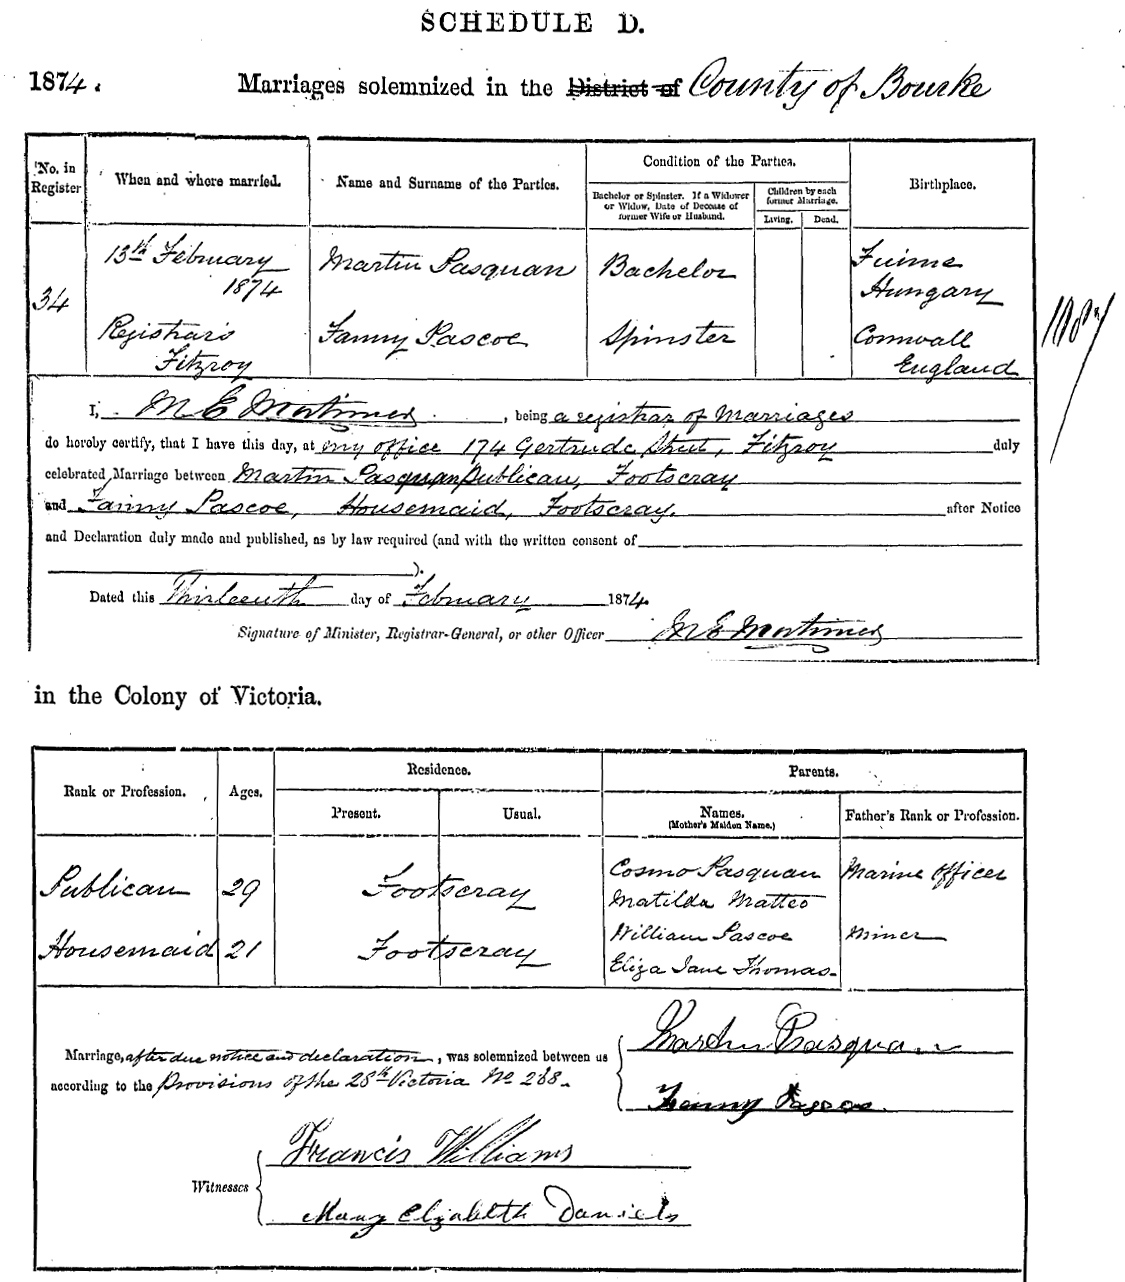 SCHEDULE D.
1874. Marriages solemnized in the District of County of Bourke
No. in Register
When and where married.
Name and Surname of the Parties.
Condition of the Parties.
Bachelor or Spinster. If a Widower or Widow, Date of Decease of former Wife or Husband.
Children by each former Marriage.
Living. Dead.
Birthplace.
34
13th February
1874
Registrar's
Fitzroy
Martin Pasquan
Bachelor
Fuime
Hungary
Fanny Pascoe
Spinster
Cornwall
England
I, M E Mortimer, being a registrar of Marriages
do hereby certify, that I have this day, at my office 174 Gertrude Street, Fitzroy duly
celebrated Marriage between Martin Pasquan Publican, Footscray
and Fanny Pascoe, Housemaid, Footscray. after Notice
and Declaration duly made and published, as by law required (and with the written consent of
).
Dated this Thirteenth day of February 1874.
Signature of Minister, Registrar-General, or other Officer M E Mortimer
in the Colony of Victoria.
Rank or Profession.
Ages.
Residence.
Present. Usual.
Parents.
Names.
(Mother's Maiden Name.)
Father's Rank or Profession.
Publican 29 Footscray
Cosmo Pasquan Marine Officer
Matilda Matteo
Housemaid 21 Footscray
William Pascoe Miner
Eliza Jane Thomas
Marriage, after due notice and declaration, was solemnized between us
according to the Provisions of the 28th Victoria No 268.
Martin Pasquan
Fanny Pascoe
Witnesses
Francis Williams
Mary Elizabeth Daniels